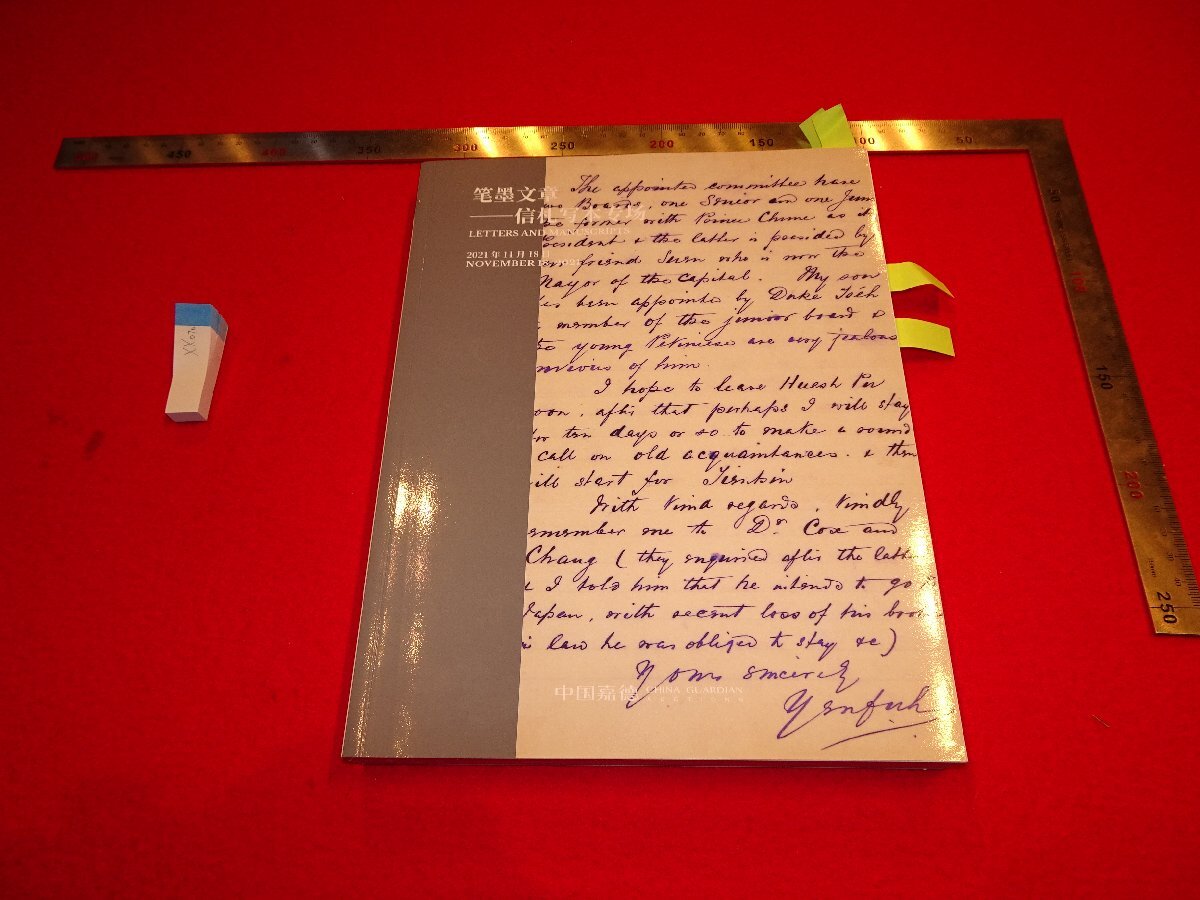 笔墨文章
——信札写本专场
LETTERS AND MANUSCRIPTS
2021年11月18日
NOVEMBER
The appointed committee have
Boards, one Senior and one Jun
former with Prince Chune as it
resident & the latter is presided by
friend Suen who is now the
Mayor of the Capital. My son
has been appointe by Duke Tseh
a member of the junior board &
the young Pekinese are very jealous
envious of him.
I hope to leave Huesh Per
oon, after that perhaps I will stay
for ten days or so to make a round
call on old acquaintances. & then
ill start for Tientsin
With kind regards, kindly
emember me to Dr. Cox and
Chang (they enquired after the latte
& I told him that he intends to go
Japan, with recent loss of his bro
in law he was obliged to stay &c)
Yours sincerely
Yenfuh
中国嘉德 CHINA GUARDIAN
AUCTIONS
450
350
300
250
200
150
100
50
50
100
150
200
250